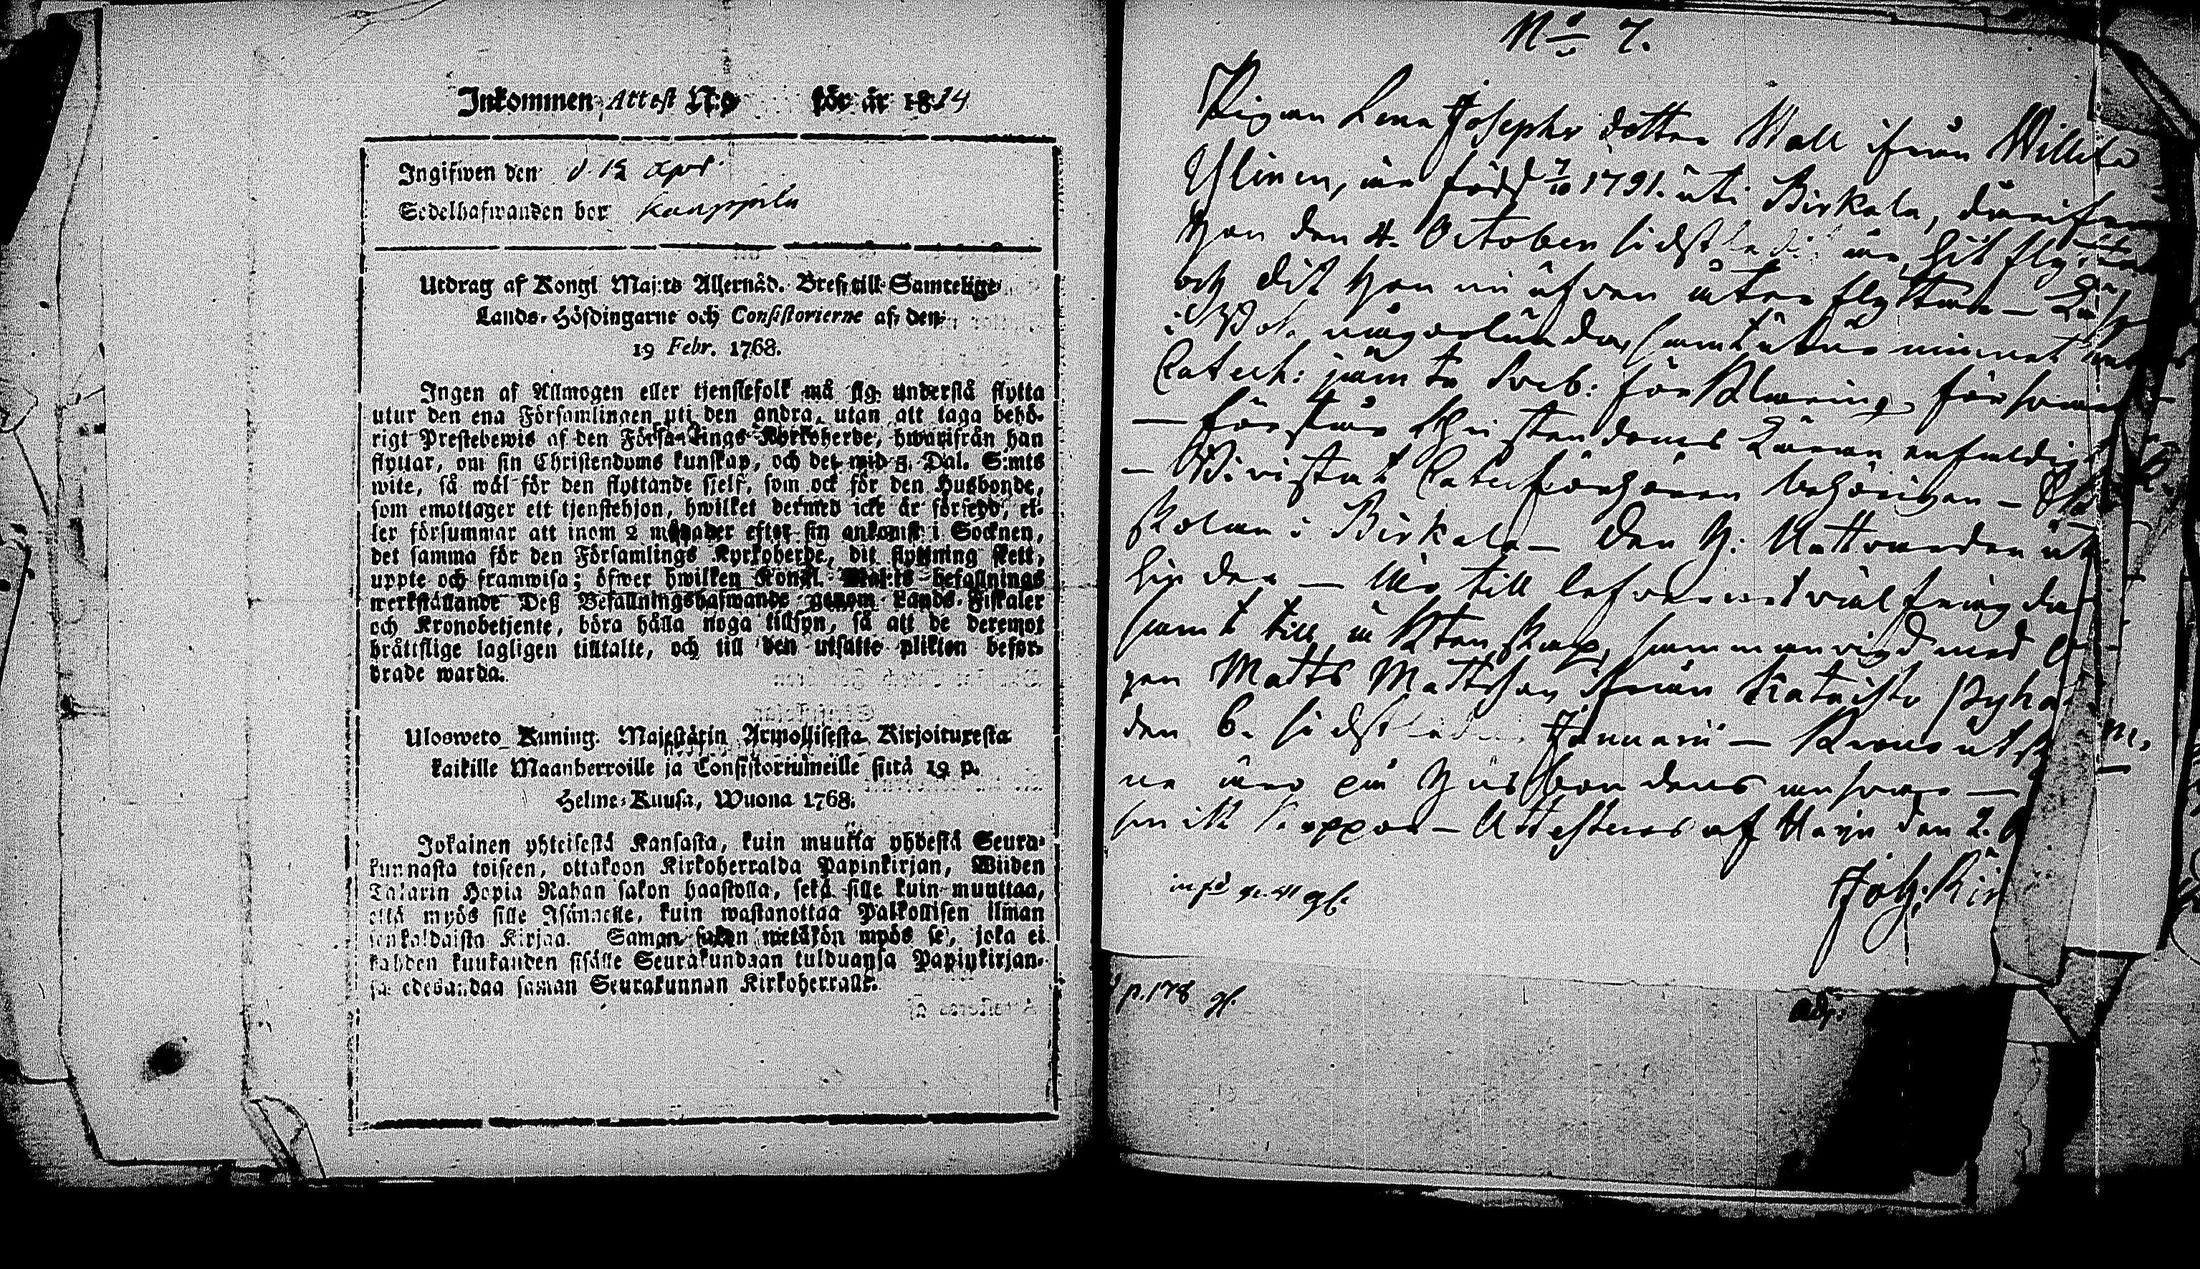 Inkommen Attest N:o för år 1814
Ingifwen den d. 12 Apr.
Sedelhafwanden bor Kauppila
Utdrag af Kongl Maj:ts Allernåd. Bref till Samtelige
Lands-Höfdingarne och Consistorierne af den
19 Febr. 1768.
Ingen af Allmogen eller tjenstefolk må sig understå flytta
utur den ena Församlingen uti den andra, utan att taga behö-
rigt Prestebewis af den Församlings Kyrkoherde, hwarifrån han
flyttar, om sin Christendoms kunskap, och det wid 5. Dal. S:mts
wite, så wäl för den flyttande sjelf, som ock för den Husbonde,
som emottager ett tjenstehjon, hwilket dermed icke är försedd, el-
ler försummar att inom 2 månader efter sin ankomst i Socknen,
det samma för den Församlings Kyrkoherde, dit flyttning skett,
uppte och framwisa; öfwer hwilken Kongl. Maj:ts befallnings
werkställande Deß Befallningshafwande genom Lands-Fiskaler
och Kronobetjente, böra hålla noga tillsyn, så att de deremot
bråttslige lagligen tilltalte, och till den utsatte plikten befor-
drade warda.
Ulosweto Kuning. Majestätin Armollisesta Kirjoituxesta
kaikille Maanherroille ja Consistoriumeille siitä 19 p.
Helme-Kuusa, Wuona 1768.
Jokainen yhteisestä Kansasta, kuin muutta yhdestä Seura-
kunnasta toiseen, ottakoon Kirkoherralda Papinkirjan, Wiiden
Talarin Hopia Rahan sakon haastolla, sekä sille kuin muuttaa,
että myös sille Isännelle, kuin wastanottaa Palkollisen ilman
senkaldaista Kirjaa. Saman sakon wetäkön myös se, joka ei
kahden kuukauden sisälle Seurakundaan tulduansa Papinkirjan-
sa edesandaa saman Seurakunnan Kirkoherralle.
N:o 7.
Pigan Lena Josephs dotter Wall ifrån Willila
Ylinen, är född 7/10 1791. uti Birkala, därifrån
hon den 4. October sidstledit är hit flyttat
och dit hon nu äfwen åter flyttar —
i Bok någorlunda, samt utur minnet
Catech: jämte Sveb: förklaring, försvarl.
— förstår Christendoms Läran enfaldigt
— Bivistat Catechförhören behörigen —
skolan i Birkala — Den H: Nattvarden
— Är till lefvernet väl frägdad
samt till äktenskap sammanvigd med
gen Matts Mattsson ifrån Katajisto Pyhä
den 6. sidstledin Januarii — Krono utsk
ne äro på Husbondens ansvar —
koppor — Attesteras af Harju den 2.
Joh:
p. 178
Adj: